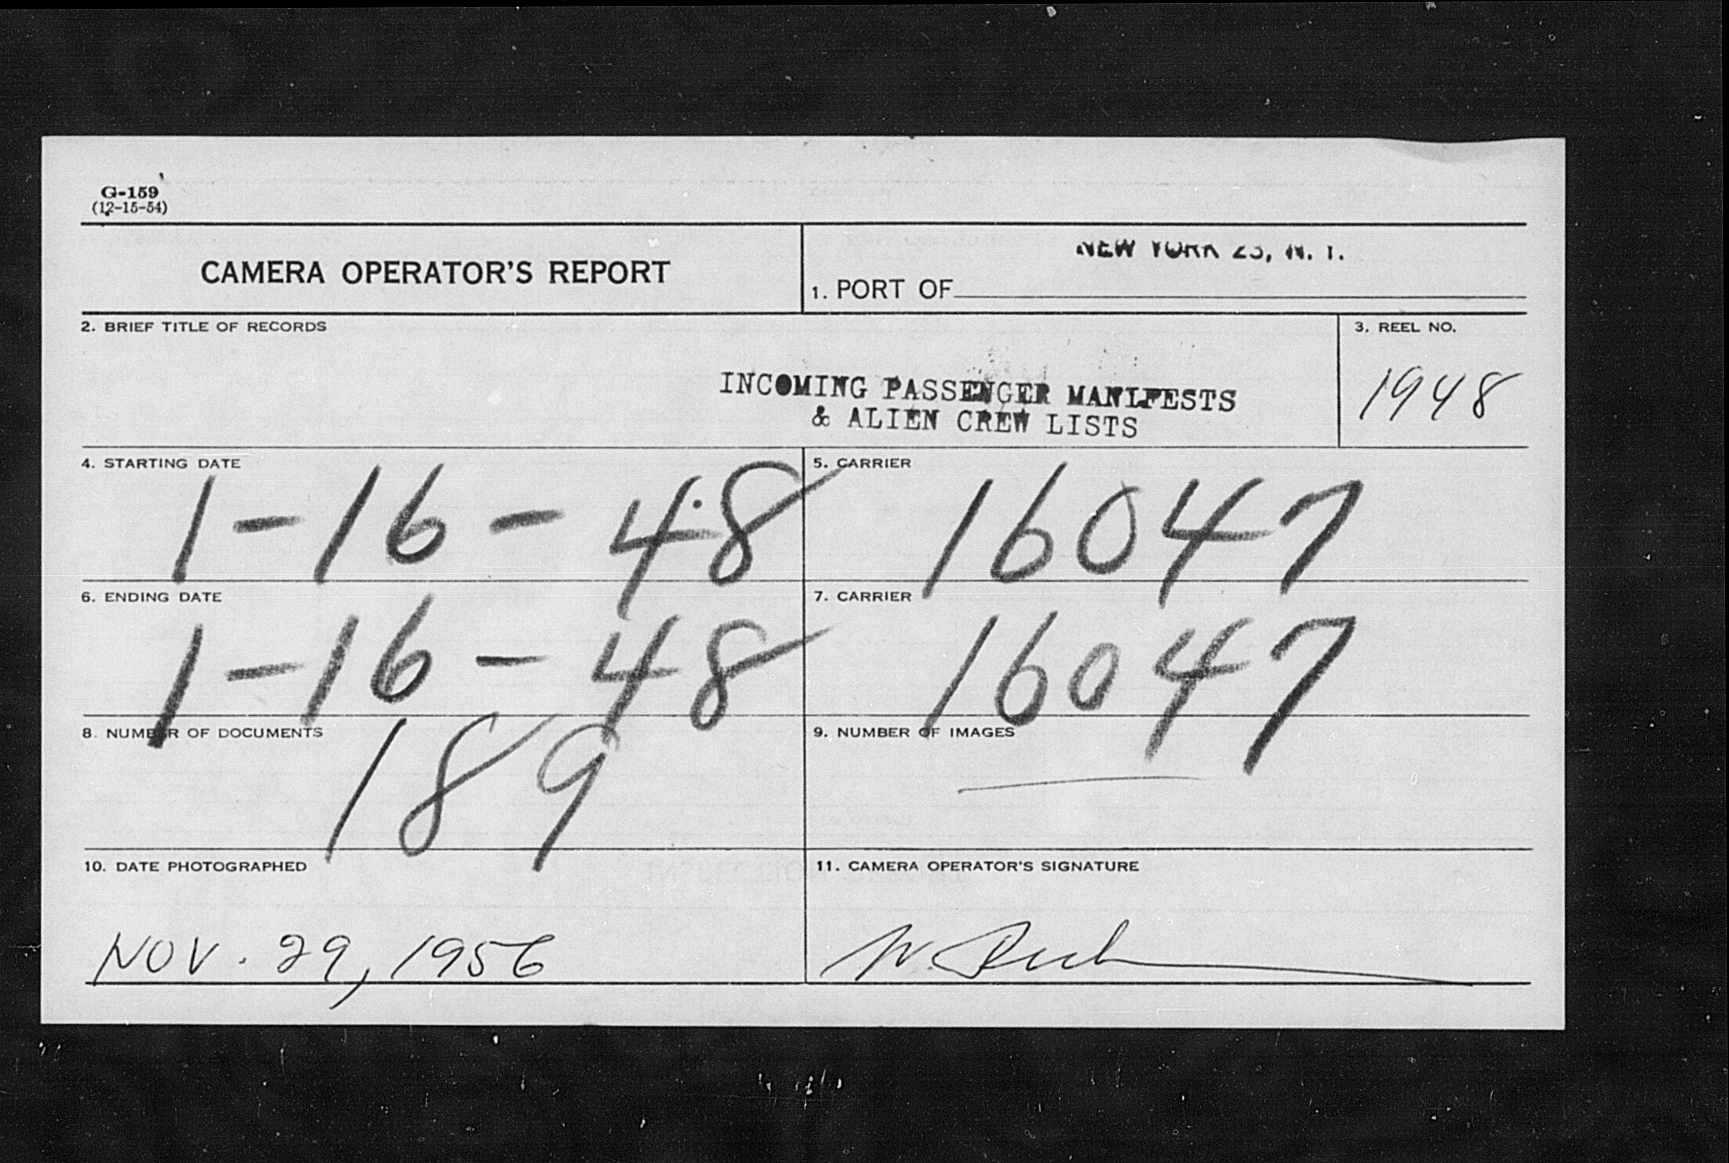 G-159
(12-15-54)
CAMERA OPERATOR'S REPORT
1. PORT OF
NEW YORK 23, N. Y.
2. BRIEF TITLE OF RECORDS
INCOMING PASSENGER MANIFESTS
& ALIEN CREW LISTS
3. REEL NO.
1948
4. STARTING DATE
1-16-48
5. CARRIER
16047
6. ENDING DATE
1-16-48
7. CARRIER
16047
8. NUMBER OF DOCUMENTS
189
9. NUMBER OF IMAGES
10. DATE PHOTOGRAPHED
NOV. 29, 1956
11. CAMERA OPERATOR'S SIGNATURE